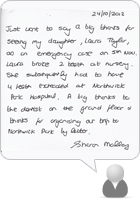 24/10/2013
Just want to say a big thanks for
seeing my daughter, Laura Taylor,
as an emergency case on 5th Nov,
Laura broke 2 teeth at nursery.
She subsequently had to have
4 teeth extracted at Northwick
Park Hospital. A big thanks to
the dentist on the ground floor &
thanks for organising our trip to
Northwick Park by letter.
Sharon